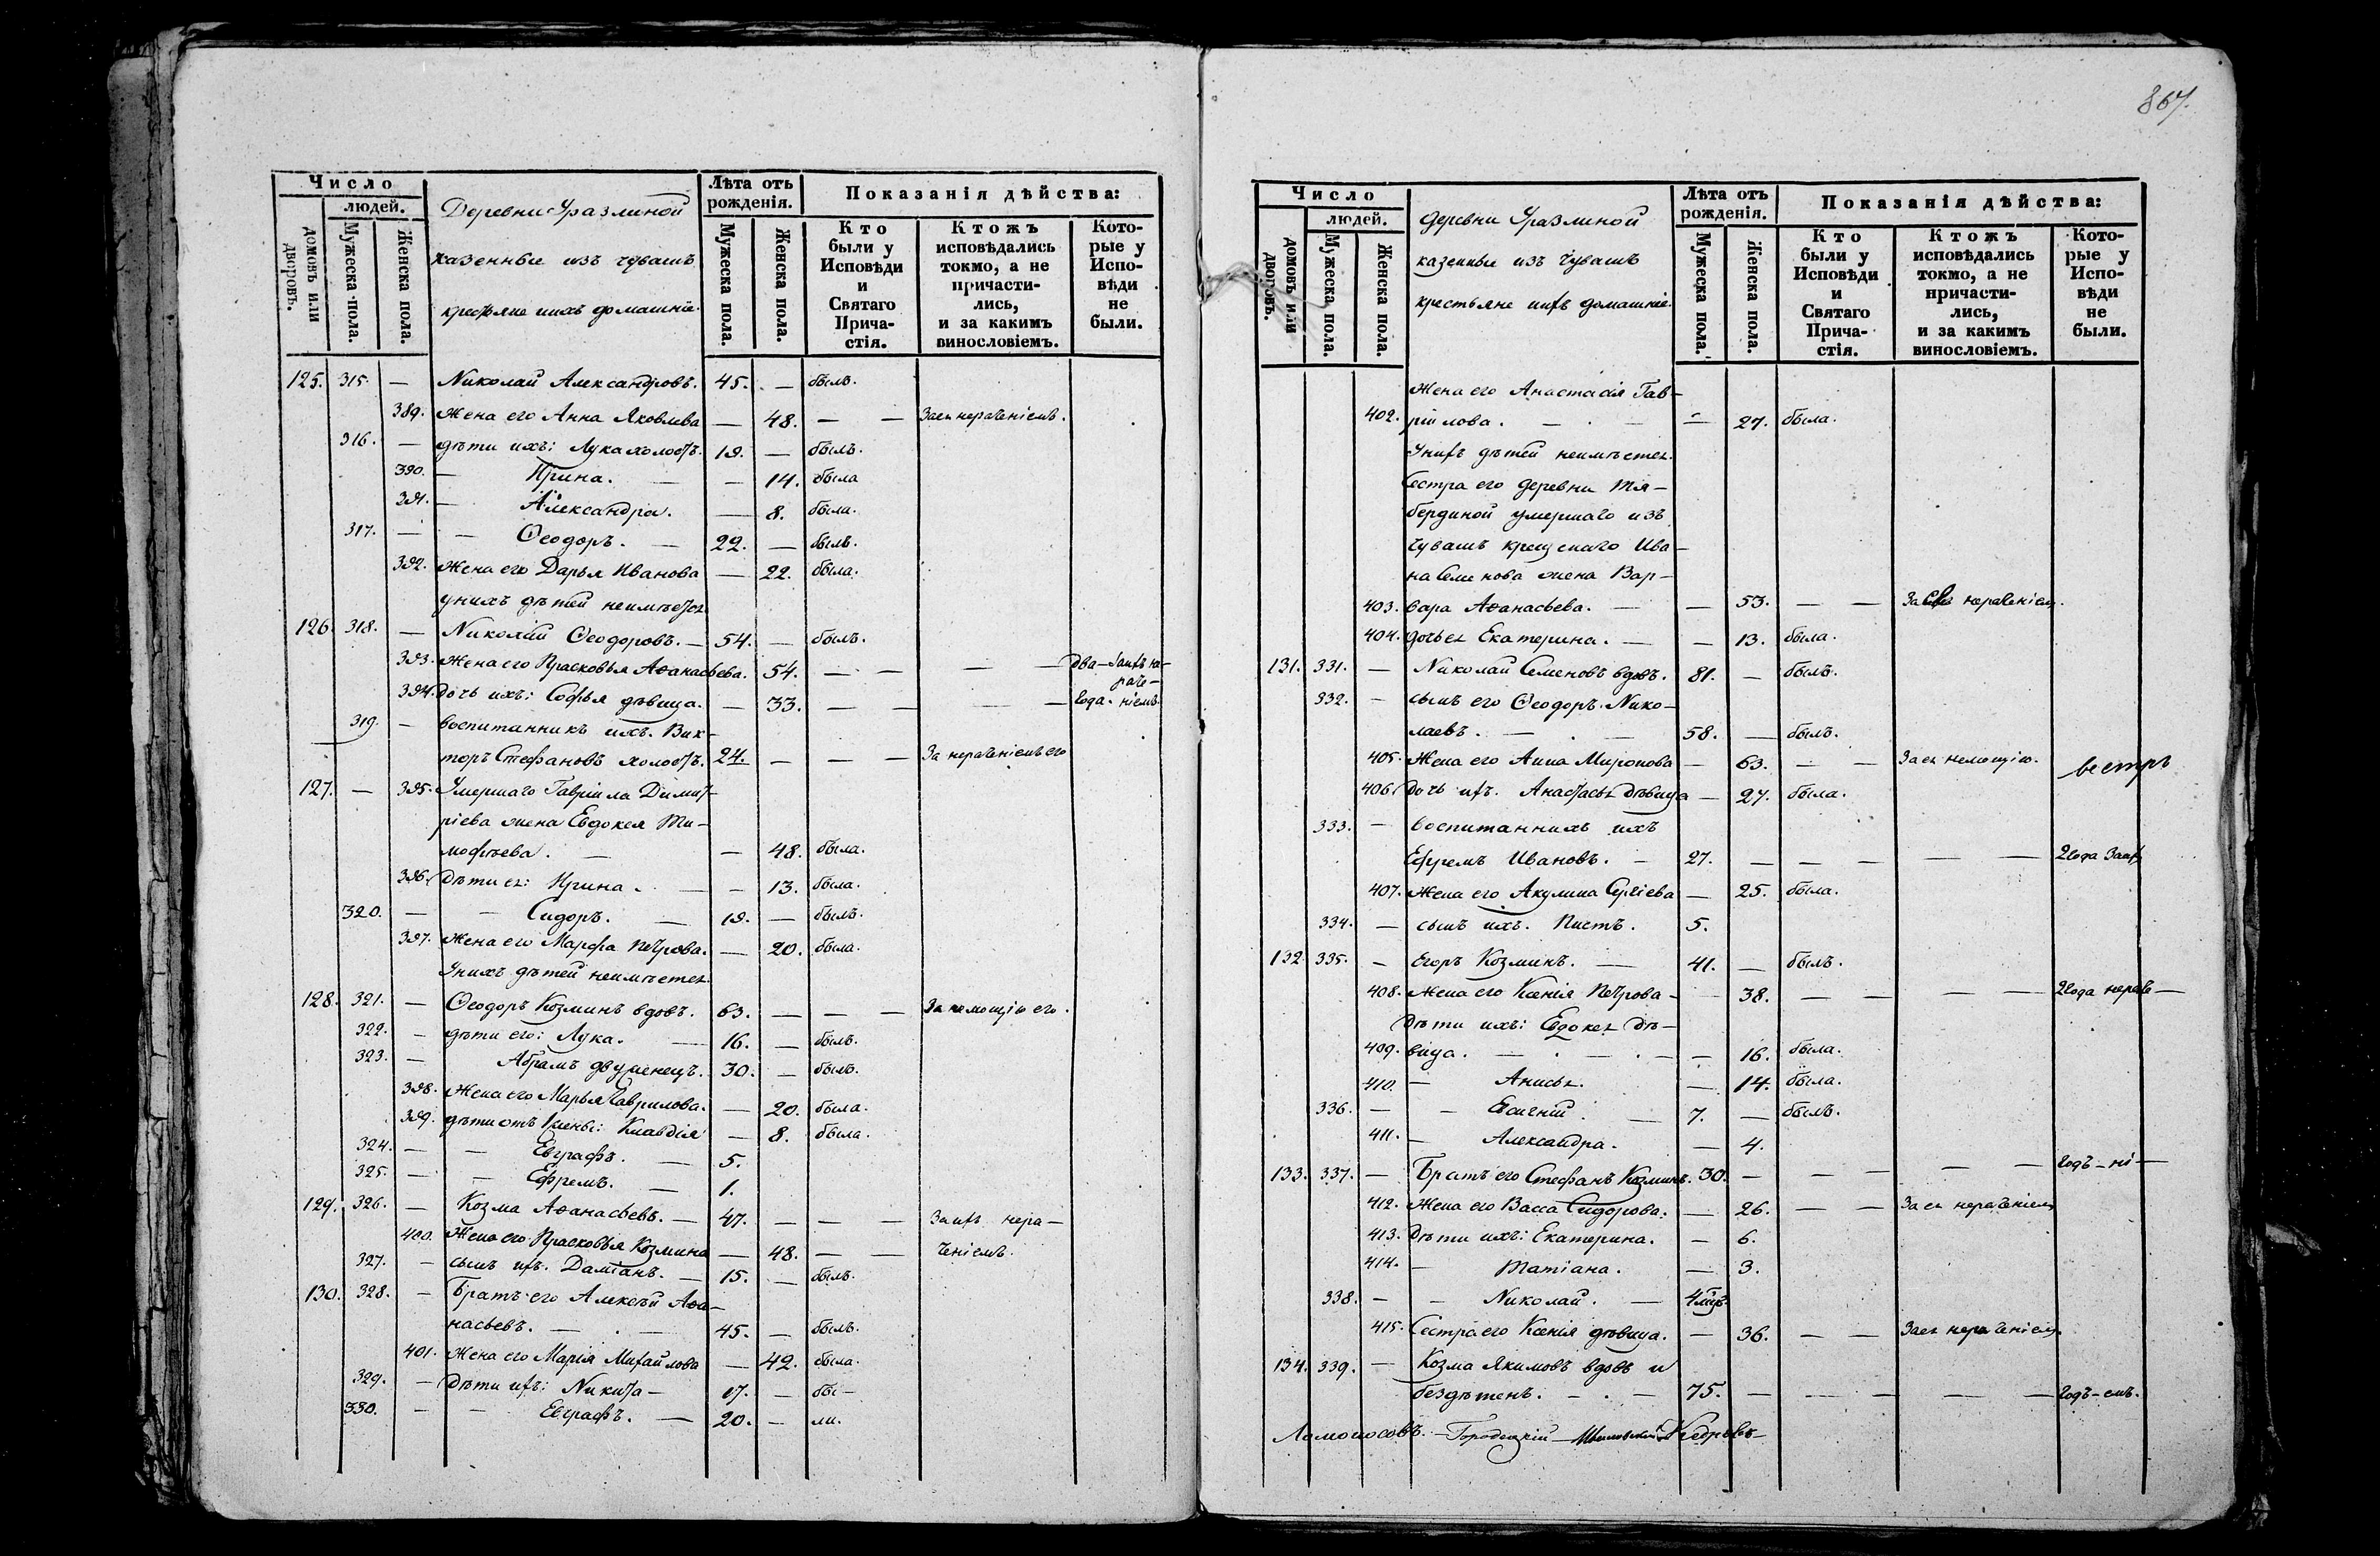 867.
Число
людей.
домовъ или дворовъ.
Мужеска пола.
Женска пола.
Деревни Уразлиной
казенные изъ чувашъ
крестьяне ихъ домашніе.
Лѣта отъ рожденія.
Мужеска пола.
Женска пола.
Показанія дѣйства:
Кто были у Исповѣди и Святаго Прича-стія.
Ктожъ исповѣдались токмо, а не причасти-лись, и за какимъ винословіемъ.
Кото-рые у Испо-вѣди не были.
125. 315. — Николай Александровъ. 45. — былъ.
389. Жена его Анна Яковлева — 48. — — За ея нераченіемъ.
316. — дѣти ихъ: Лука холостъ. 19. — былъ.
390. — Ирина. — — 14. была
391. — Александра. — 8. была.
317. — — Ѳеодоръ. — 22. — былъ.
392. Жена его Дарья Иванова — 22. была.
у нихъ дѣтей неимѣется
126. 318. — Николай Ѳеодоровъ. — 54. — былъ.
393. Жена его Прасковья Аѳанасьева. 54. — — — — два — за ихъ не-
раче-
394. дочь ихъ: Софья дѣвица. — 33. — — — — года. ніемъ.
319. — воспитанникъ ихъ. Вик-
торъ Стефановъ холостъ. 24. — — — За нераченіемъ его
127. — 395. Умершаго Гавріила Димит-
ріева жена Евдокея Ти-
мофѣева. — — 48. была.
396. Дѣти ея: Ирина. — — 13. была.
320. — — Сидоръ. — 19. — былъ.
397. Жена его Марфа Петрова. — 20. была.
У нихъ дѣтей неимѣется
128. 321. — Ѳеодоръ Козминъ вдовъ. 63. — — — За немощію его.
322. — дѣти его: Лука. — 16. — былъ.
323. — Абрамъ двуженецъ. 30. — былъ.
398. Жена его Марья Гаврилова. — 20. была.
399. дѣти отъ 1 жены: Клавдія — 8. была.
324. — — Евграфъ. — 5.
325. — — Ефремъ. — 1.
129. 326. — Козма Аѳанасьевъ. — 47. — — — За ихъ нера-
400. Жена его Прасковья Козмина — 48. — — ченіемъ.
327. — сынъ ихъ. Даміанъ. — 15. — былъ.
130. 328. — Братъ его Алексѣй Аѳа-
насьевъ. — . — 45. — былъ.
401. Жена его Марія Михайлова — 42. была.
329. — Дѣти ихъ: Никита — 17. — бы-
330. — — Евграфъ. — 20. — ли.
Число
людей.
домовъ или дворовъ.
Мужеска пола.
Женска пола.
деревни Уразлиной
казенные изъ Чувашъ
крестьяне ихъ домашніе.
Лѣта отъ рожденія.
Мужеска пола.
Женска пола.
Показанія дѣйства:
Кто были у Исповѣди и Святаго Прича-стія.
Ктожъ исповѣдались токмо, а не причасти-лись, и за какимъ винословіемъ.
Кото-рые у Испо-вѣди не были.
Жена его Анастасія Гав-
402. ріилова. — . — — 27. была.
У нихъ дѣтей неимѣется.
Сестра его деревни Тя-
бердиной умершаго изъ
чувашъ крещенаго Ива-
на Семенова жена Вар-
403. вара Аѳанасьева. — — 53. — — За нераченіемъ.
404. дочь ея Екатерина. — — 13. была.
131. 331. — Николай Семеновъ вдовъ. 81. — былъ.
332. — сынъ его Ѳеодоръ Нико-
лаевъ. — . — 58. — былъ.
405. Жена его Анна Миронова — 63. — — За ея немощію.
406. Дочь ихъ. Анастасья дѣвица — 27. была.
333. — воспитанникъ ихъ
Ефремъ Ивановъ. — 27. — — — — — 2 года За ихъ
407. Жена его Акулина Сергіева — 25. была.
334. — сынъ ихъ. Пистъ. 5.
132. 335. — Егоръ Козминъ. — 41. — былъ.
408. Жена его Ксенія Петрова — — 38. — — — — 2 года нераче —
Дѣти ихъ: Евдокея дѣ-
409. вица. — . — . — — 16. была.
410. — Анисья. — 14. была.
336. — — Евгеній. — 7. — былъ.
411. — Александра. — 4.
133. 337. — Братъ его Стефанъ Козминъ. 30. — — — — — Годъ — ні —
412. Жена его Васса Сидорова. — 26. — — За ея нераченіемъ
413. Дѣти ихъ: Екатерина. — 6.
414. — Татіана. — 3.
338. — — Николай. — 4 мѣц.
415. Сестра его Ксенія дѣвица. — 36. — — За ея нераченіемъ.
134. 339. — Козма Якимовъ вдовъ и
бездѣтенъ. — . — 75. — — — — — Годъ — емъ.
Ломоносовъ. — Городецкій — Кедровъ —